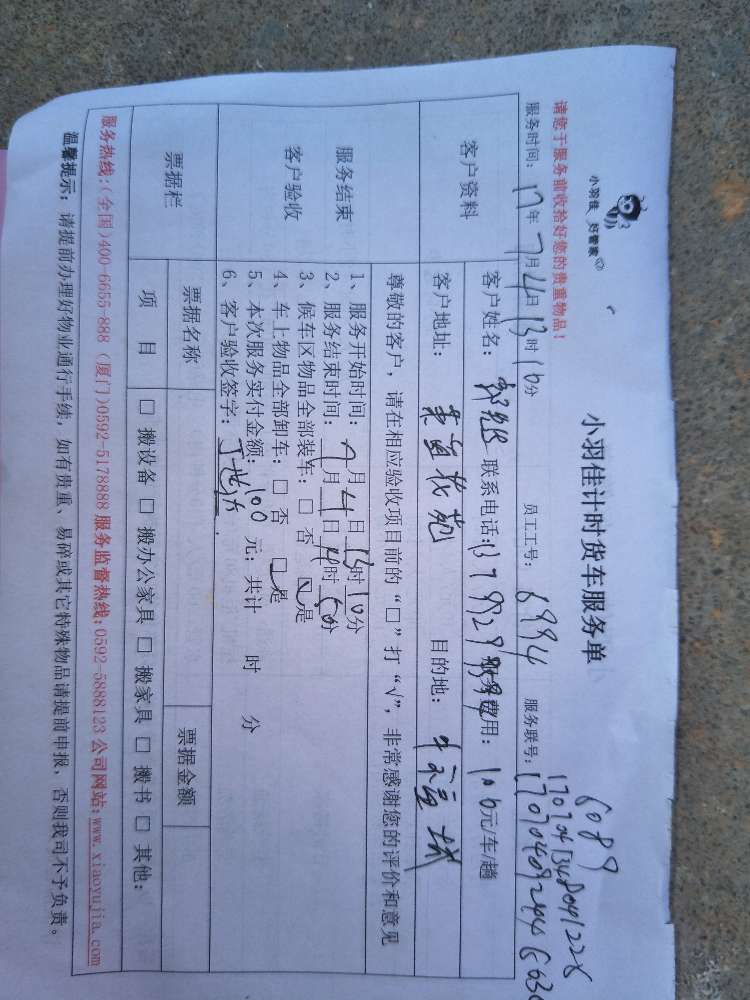 小羽佳 好管家
小羽佳计时货车服务单
6089
请您于服务前收拾好您的贵重物品！
服务时间：17年7月4日13时10分 员工工号：6994 服务联号：
客户资料
客户姓名： 联系电话： 服务费用：100元/车/趟
客户地址： 花苑 目的地：
尊敬的客户，请在相应验收项目前的“□”打“√”，非常感谢您的评价和意见
服务结束
客户验收
1、服务开始时间：7月4日13时10分
2、服务结束时间：7月4日14时50分
3、候车区物品全部装车：□ 否 □是
4、车上物品全部卸车：□ 否 □是
5、本次服务实付金额：100 元；共计 时 分
6、客户验收签字：
票据栏
票据名称 票据金额
项 目 □ 搬设备 □ 搬办公家具 □ 搬家具 □ 搬书 □ 其他：
服务热线：(全国)400-6655-888 (厦门)0592-5178888 服务监督热线：0592-5888123 公司网站：www.xiaoyujia.com
温馨提示：请提前办理好物业通行手续，如有贵重、易碎或其它特殊物品请提前申报，否则我司不予负责。